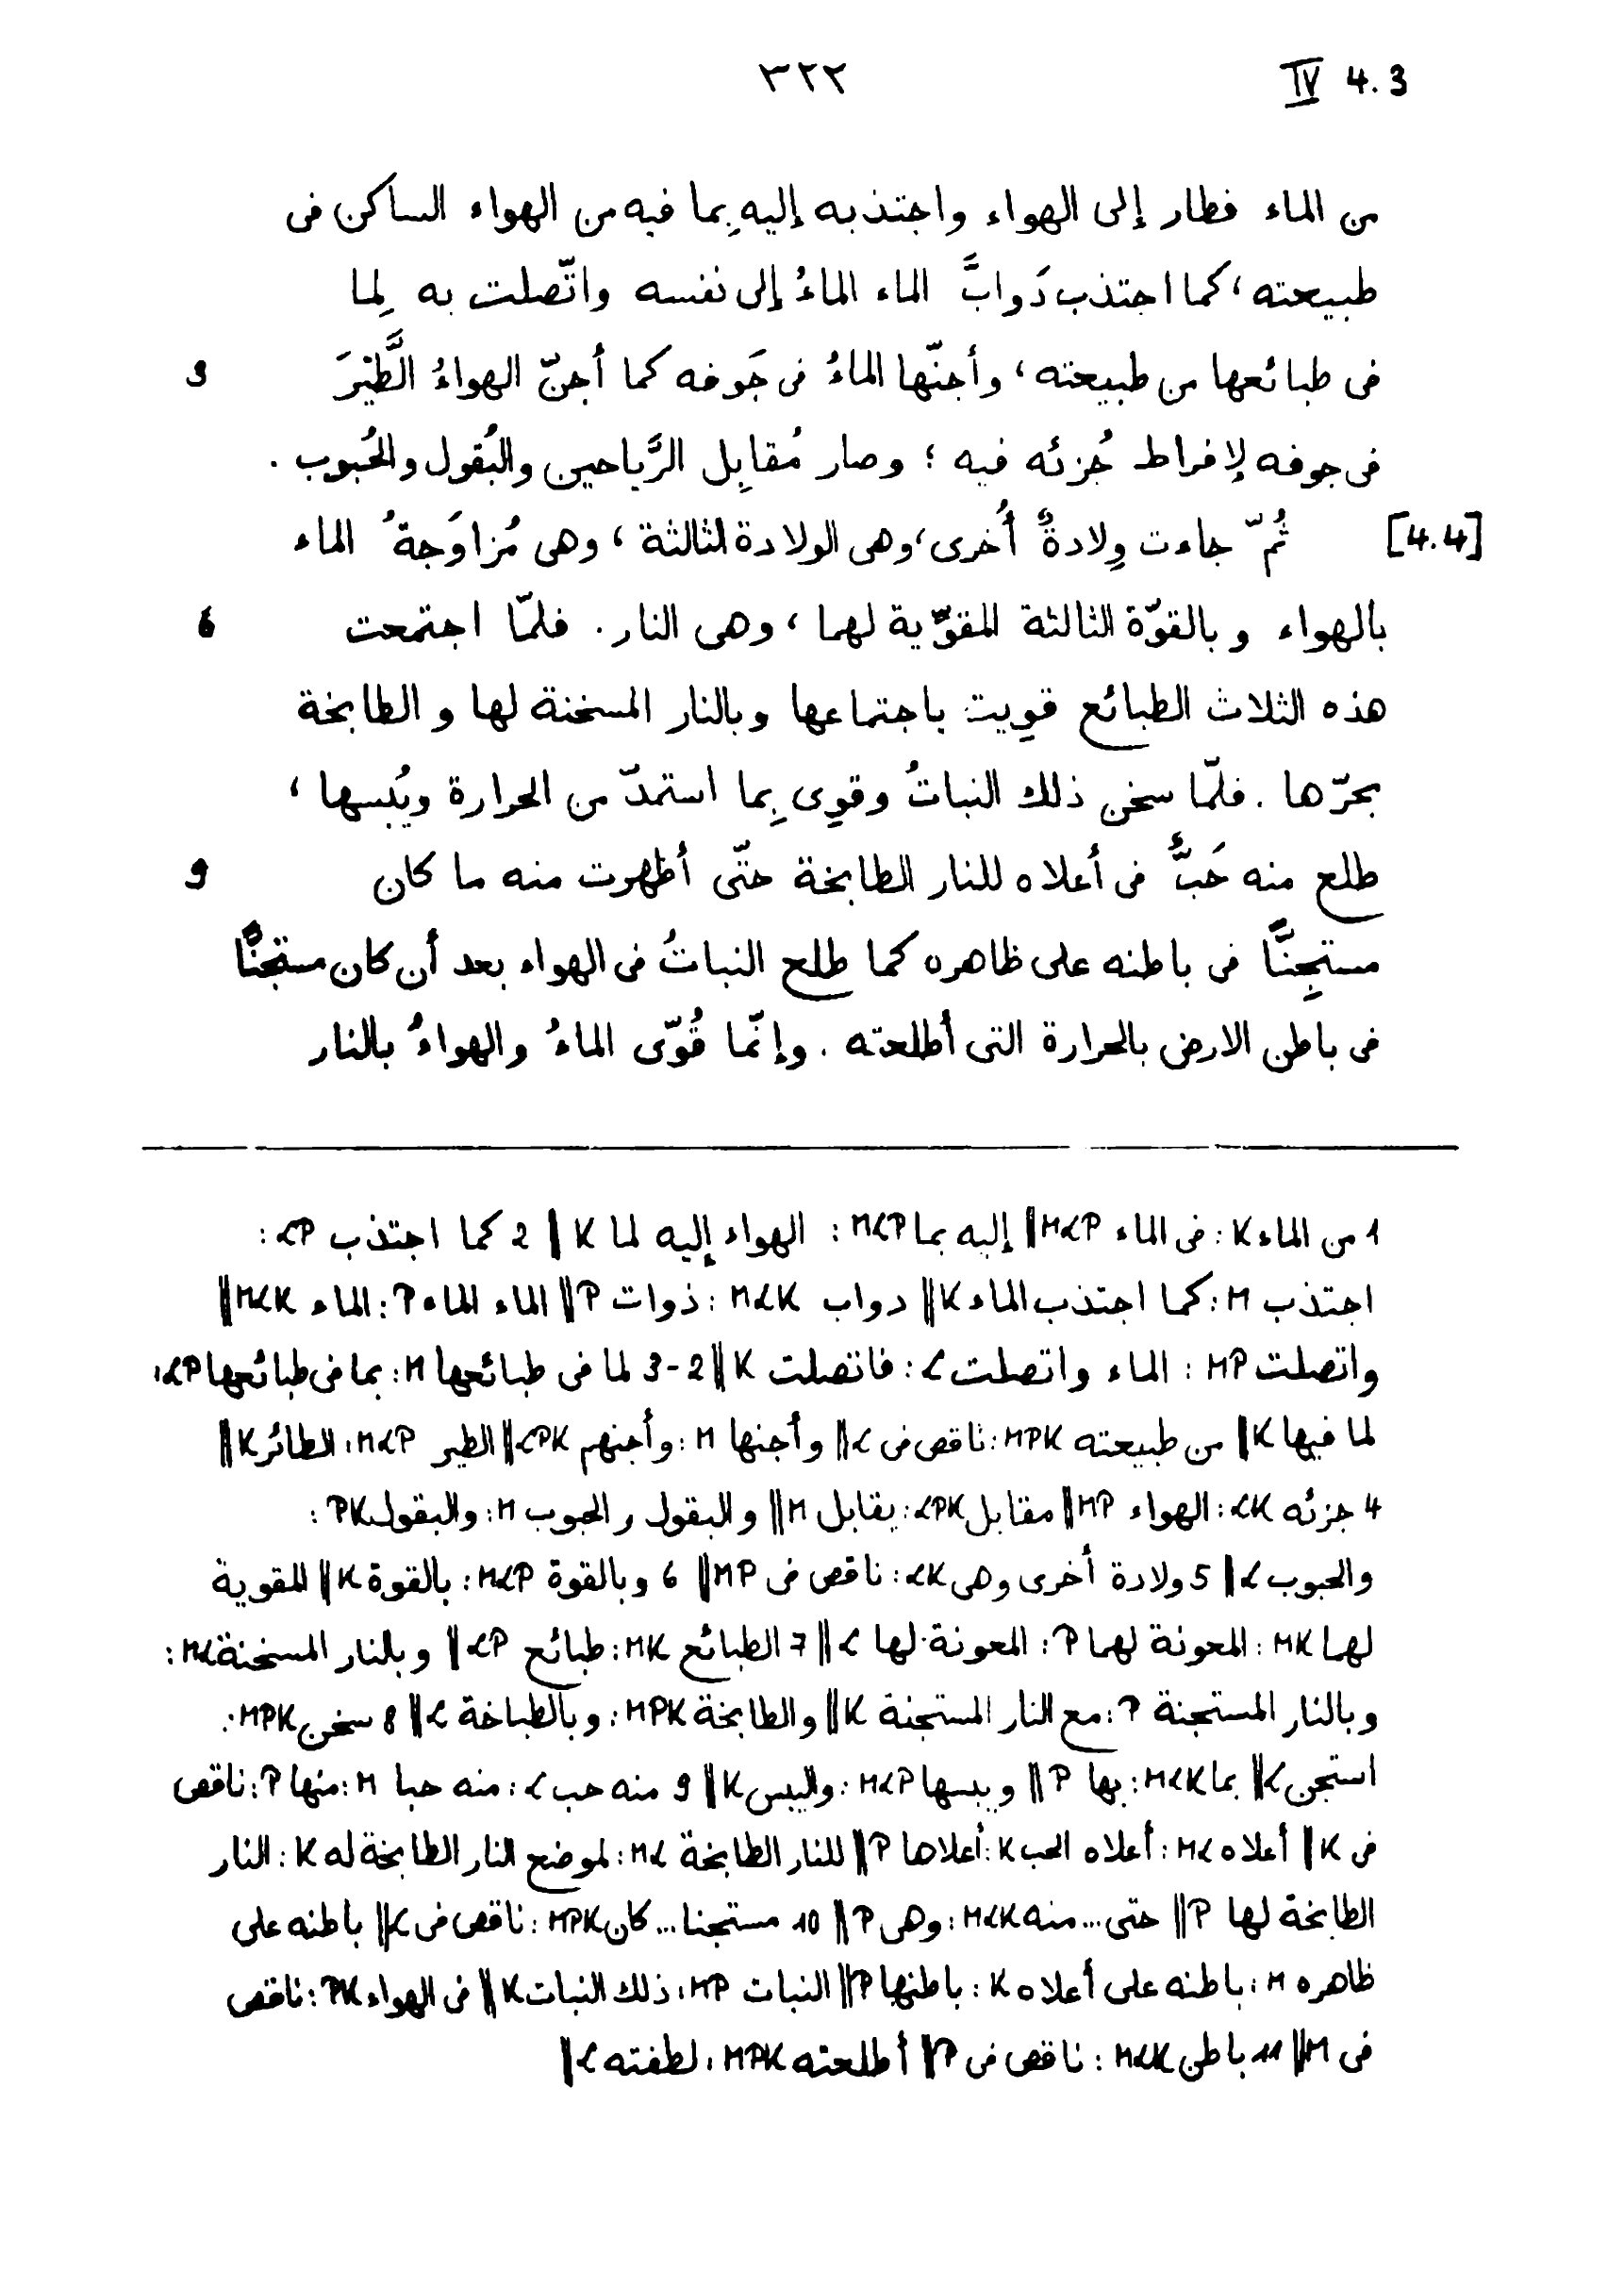 IV 4.3 ٣٢٢
من الماء فطار إلى الهواء واجتذبه إليه بِما فيه من الهواء الساكن فى
طبيعته، كما اجتذب دَوابَّ الماء الماءُ إلى نفسه واتّصلت به لِما
فى طبائعها من طبيعته، وأجنّها الماءُ فى جَوفه كما أجنّ الهواءُ الطَّيْرَ 3
فى جوفه لإفراط جُزئه فيه؛ وصار مُقابِل الرَّياحين والبُقول والحُبوب.
[4.4] ثُمّ جاءت وِلادةٌ أُخرى، وهى الولادة الثالثة، وهى مُزاوَجةُ الماء
بالهواء وبالقوّة الثالثة المقوِّية لهما، وهى النار. فلمّا اجتمعت 6
هذه الثلاث الطبائع قوِيت باجتماعها وبالنار المسخنة لها والطابخة
بحرّها. فلمّا سخن ذلك النباتُ وقوِى بِما استمدّ من الحرارة ويُبسها،
طلع منه حَبٌّ فى أعلاه للنار الطابخة حتّى أظهرت منه ما كان 9
مستجِنًّا فى باطنه على ظاهره كما طلع النباتُ فى الهواء بعد أن كان مستجنًّا
فى باطن الارض بالحرارة التى أطلعته. وإنّما قُوّى الماءُ والهواءُ بالنار
1 من الماء K: فى الماء MLP‖ إليه بما MLP: الهواء إليه لما K‖ 2 كما اجتذب LP:
اجتذب M: كما اجتذب الماء K‖ دواب MLK: ذوات P‖ الماء الماء P: الماء MLK‖
واتصلت MP: الماء واتصلت L: فاتصلت K‖ 2-3 لما فى طبائعها M: بما فى طبائعها LP:
لما فيها K‖ من طبيعته MPK: ناقص فى L‖ وأجنها M: وأجنهم LPK‖ الطير MLP: الطائر K‖
4 جزئه LK: الهواء MP‖ مقابل LPK: يقابل M‖ والبقول والحبوب M: والبقول PK:
والحبوب L‖ 5 ولادة أخرى وهى LK: ناقص فى MP‖ 6 وبالقوة MLP: بالقوة K‖ المقوية
لهما MK: المعونة لهما P: المعونة لها L‖ 7 الطبائع MK: طبائع LP‖ وبالنار المسخنة ML:
وبالنار المستجنة P: مع النار المستجنة K‖ والطابخة MPK: وبالطباخة L‖ 8 سخن MPK:
استجن L‖ بما MLK: بها P‖ ويبسها MLP: واليبس K‖ 9 منه حب L: منه حبا M: منها P: ناقص
فى K‖ أعلاه ML: أعلاه الحب K: أعلاها P‖ للنار الطابخة ML: لموضع النار الطابخة له K: النار
الطابخة لها P‖ حتى... منه MLK: وهى P‖ 10 مستجنا... كان MPK: ناقص فى L‖ باطنه على
ظاهره M: باطنه على أعلاه K: باطنها P‖ النبات MP: ذلك النبات K‖ فى الهواء PK: ناقص
فى M‖ 11 باطن MLK: ناقص فى P‖ أطلعته MPK: لطفته L‖